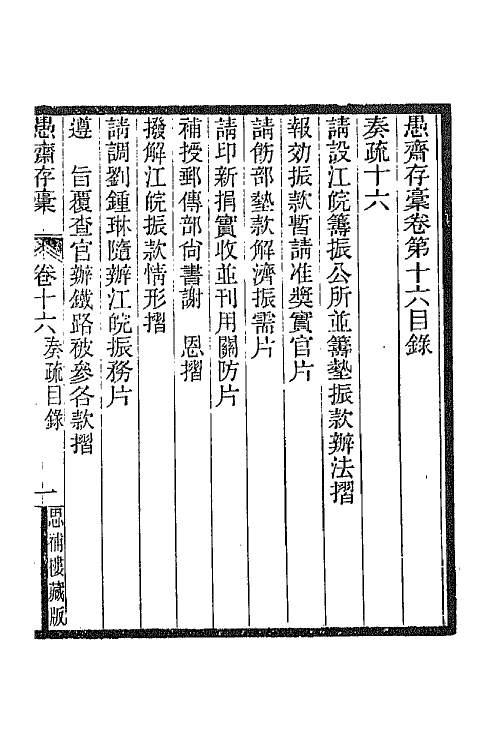 愚齋存稾卷第十六目錄
奏疏十六
請設江皖籌振公所並籌墊振款辦法摺
報効振款暫請准奬實官片
請飭部墊款解濟振需片
請印新捐實收並刊用關防片
補授郵傳部尙書謝 恩摺
撥解江皖振款情形摺
請調劉鍾琳隨辦江皖振務片
遵 旨覆查官辦鐵路被參各款摺
愚齋存稾 卷十六 奏疏目錄 一 思補樓藏版